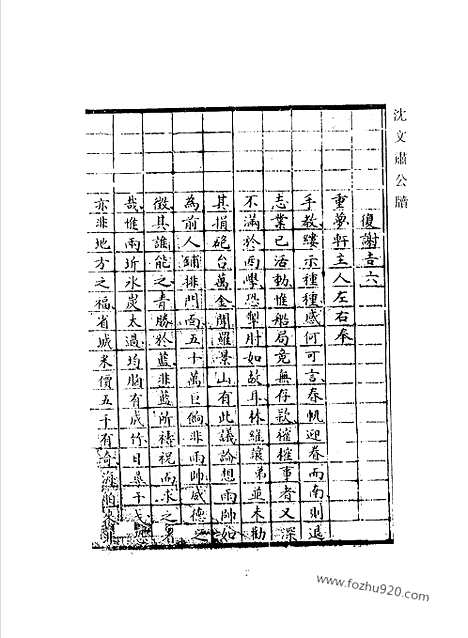 沈文肅公牘
復謝吉六
重夢軒主人左右奉
手教縷示種種感何可言春帆迎春而南則退
志業已活動惟船局竟無存款權榷事者又深
不滿於西學恐掣肘如故耳林維讓弟並未勸
其捐砲台萬金聞羅景山有此議論想雨帥如
為前人鋪排門面五十萬巨餉非雨帥威德之
徵其誰能之青勝於藍非藍所禱祝而求之者
哉惟兩圻冰炭太過均胸有成竹日尋干戈恐
亦非地方之福省城米價五千有奇海舶來
www.fozhu920.com